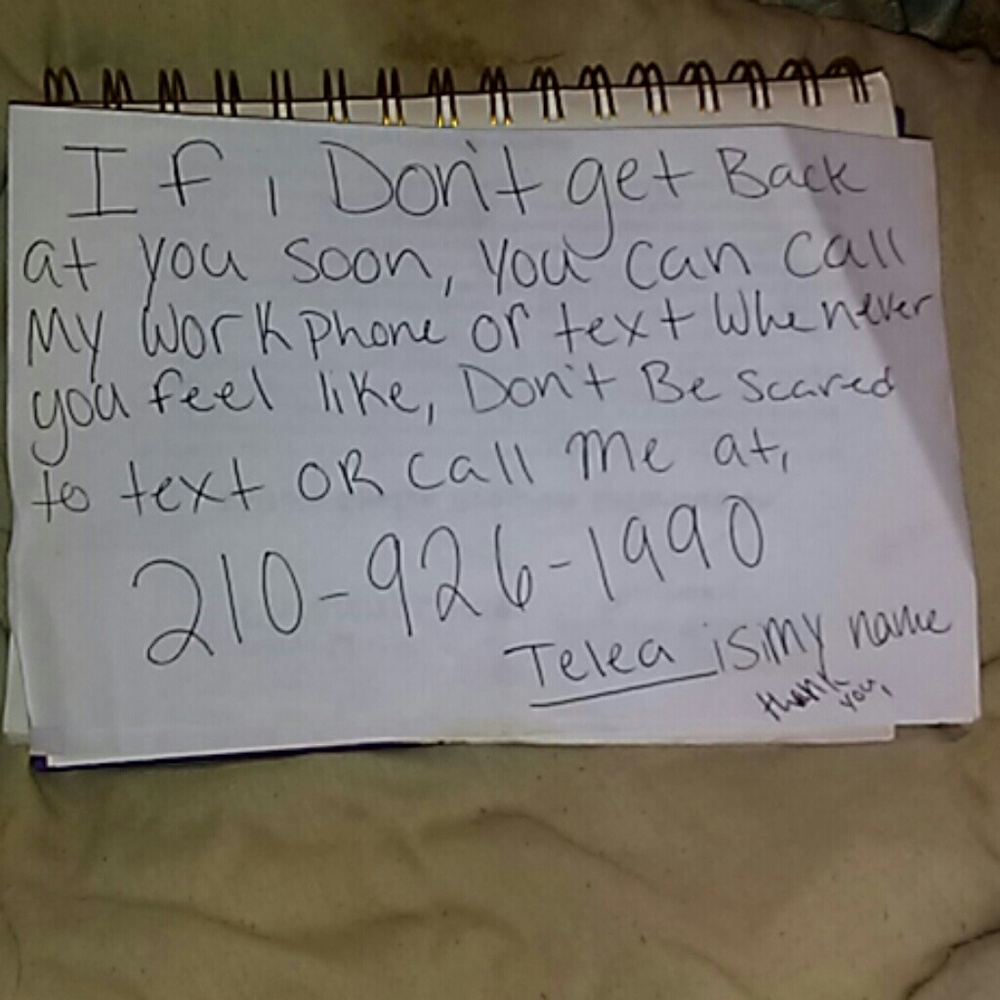 If i Don't get Back
at you soon, you can call
My work phone or text Whenever
you feel like, Don't Be scared
to text OR call me at,
210-926-1990
Telea is my name
thank you,